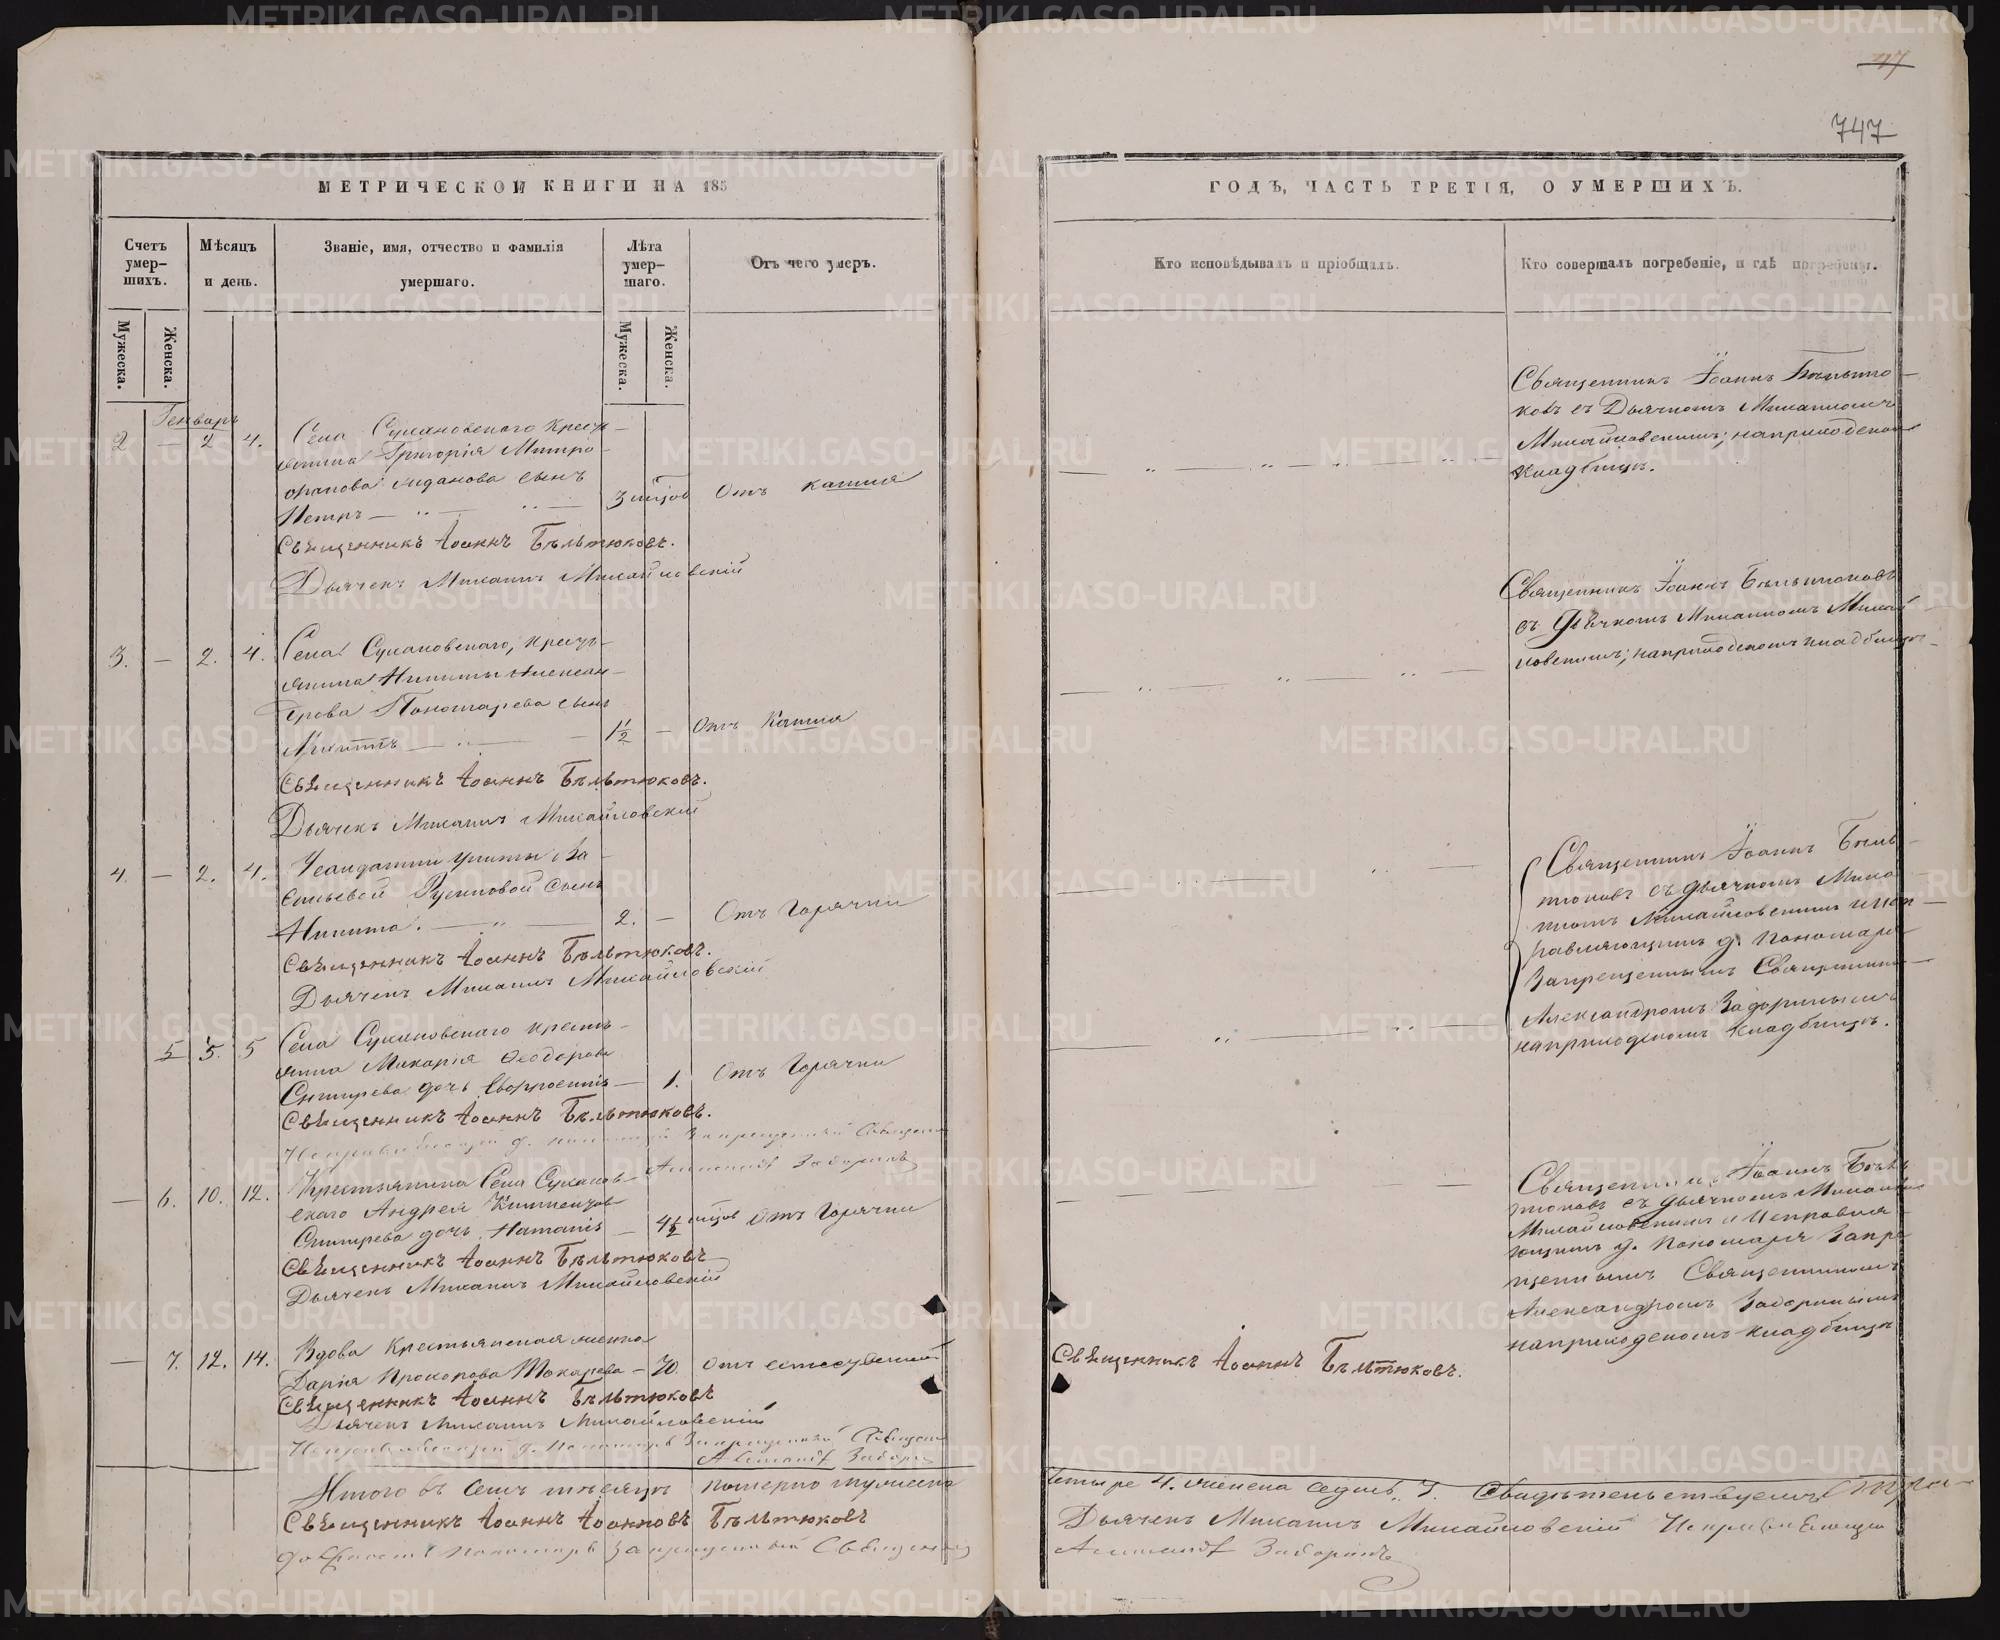 747
МЕТРИЧЕСКОЙ КНИГИ НА 185
ГОДЪ, ЧАСТЬ ТРЕТІЯ, О УМЕРШИХЪ.
Счетъ умер-шихъ.
Мужеска.
Женска.
Мѣсяцъ
и день.
Званіе, имя, отчество и фамилія
умершаго.
Лѣта умер-шаго.
Мужеска.
Женска.
Отъ чего умеръ.
Кто исповѣдывалъ и пріобщалъ.
Кто совершалъ погребеніе, и гдѣ погребены.
Генварь
2 — 2 4. Села Сухановскаго Кресть-
янина Григорія Митро-
фанова сынъ
Петръ — 3 Отъ кашля
Священникъ Іоаннъ Бѣльтюковъ.
Дьячекъ Михаилъ Михайловскій
Священникъ Іоаннъ Бѣльтю-
ковъ съ Дьячкомъ Михаиломъ
Михайловскимъ; на приходскомъ
кладбищѣ.
3. — 2. 4. Села Сухановскаго, кресть-
янина Никиты Алексан-
дрова Пономарева сынъ
— 1 1/2 — Отъ Кашля
Священникъ Іоаннъ Бѣльтюковъ.
Дьячекъ Михаилъ Михайловскій
Священникъ Іоаннъ Бѣльтюковъ
съ Дьячкомъ Михаиломъ Михай-
ловскимъ; на приходскомъ кладбищѣ
4. — 2. 4. Солдатки Улиты Ва-
сильевой сынъ
Никита. — 2. — Отъ Горячки
Священникъ Іоаннъ Бѣльтюковъ.
Дьячекъ Михаилъ Михайловскій
Священникъ Іоаннъ Бѣль-
тюковъ съ дьячкомъ Миха-
иломъ Михайловскимъ и исп-
равляющимъ д. Пономаря
Запрещеннымъ Священникомъ
Александромъ Задоринымъ
на приходскомъ кладбищѣ.
5 5. 5 Села Сухановскаго кресть-
янина Макарія Ѳеодорова
Снигирева дочь Евфросинія — 1. Отъ Горячки
Священникъ Іоаннъ Бѣльтюковъ.
Исправляющій д. Пономаря Запрещенный Священникъ
Александръ Задоринъ
— 6. 10. 12. Крестьянина Села Суханов-
скаго Андрея Климентова
Снигирева дочь Наталія — 4 1/2 Отъ Горячки
Священникъ Іоаннъ Бѣльтюковъ
Дьячекъ Михаилъ Михайловскій
Священникъ Іоаннъ Бѣль-
тюковъ съ дьячкомъ Михаиломъ
Михайловскимъ и Исправля-
ющимъ д. Пономаря Запре-
щеннымъ Священникомъ
Александромъ Задоринымъ
на приходскомъ кладбищѣ
— 7. 12. 14. Вдова Крестьянская женка
Дарія Прохорова Токарева — 70. отъ естественной
Священникъ Іоаннъ Бѣльтюковъ
Дьячекъ Михаилъ Михайловскій
Исправляющій д. Пономаря Запрещенный Священникъ
Александръ Задоринъ
Священникъ Іоаннъ Бѣльтюковъ.
Итого въ семъ мѣсяцѣ померло мужеска
четыре 4. женска седмь 7. Свидѣтельствуемъ
Священникъ Іоаннъ Іоанновъ Бѣльтюковъ
Дьячекъ Михаилъ Михайловскій Исправляющій
должность Пономаря Запрещенный Священникъ
Александръ Задоринъ